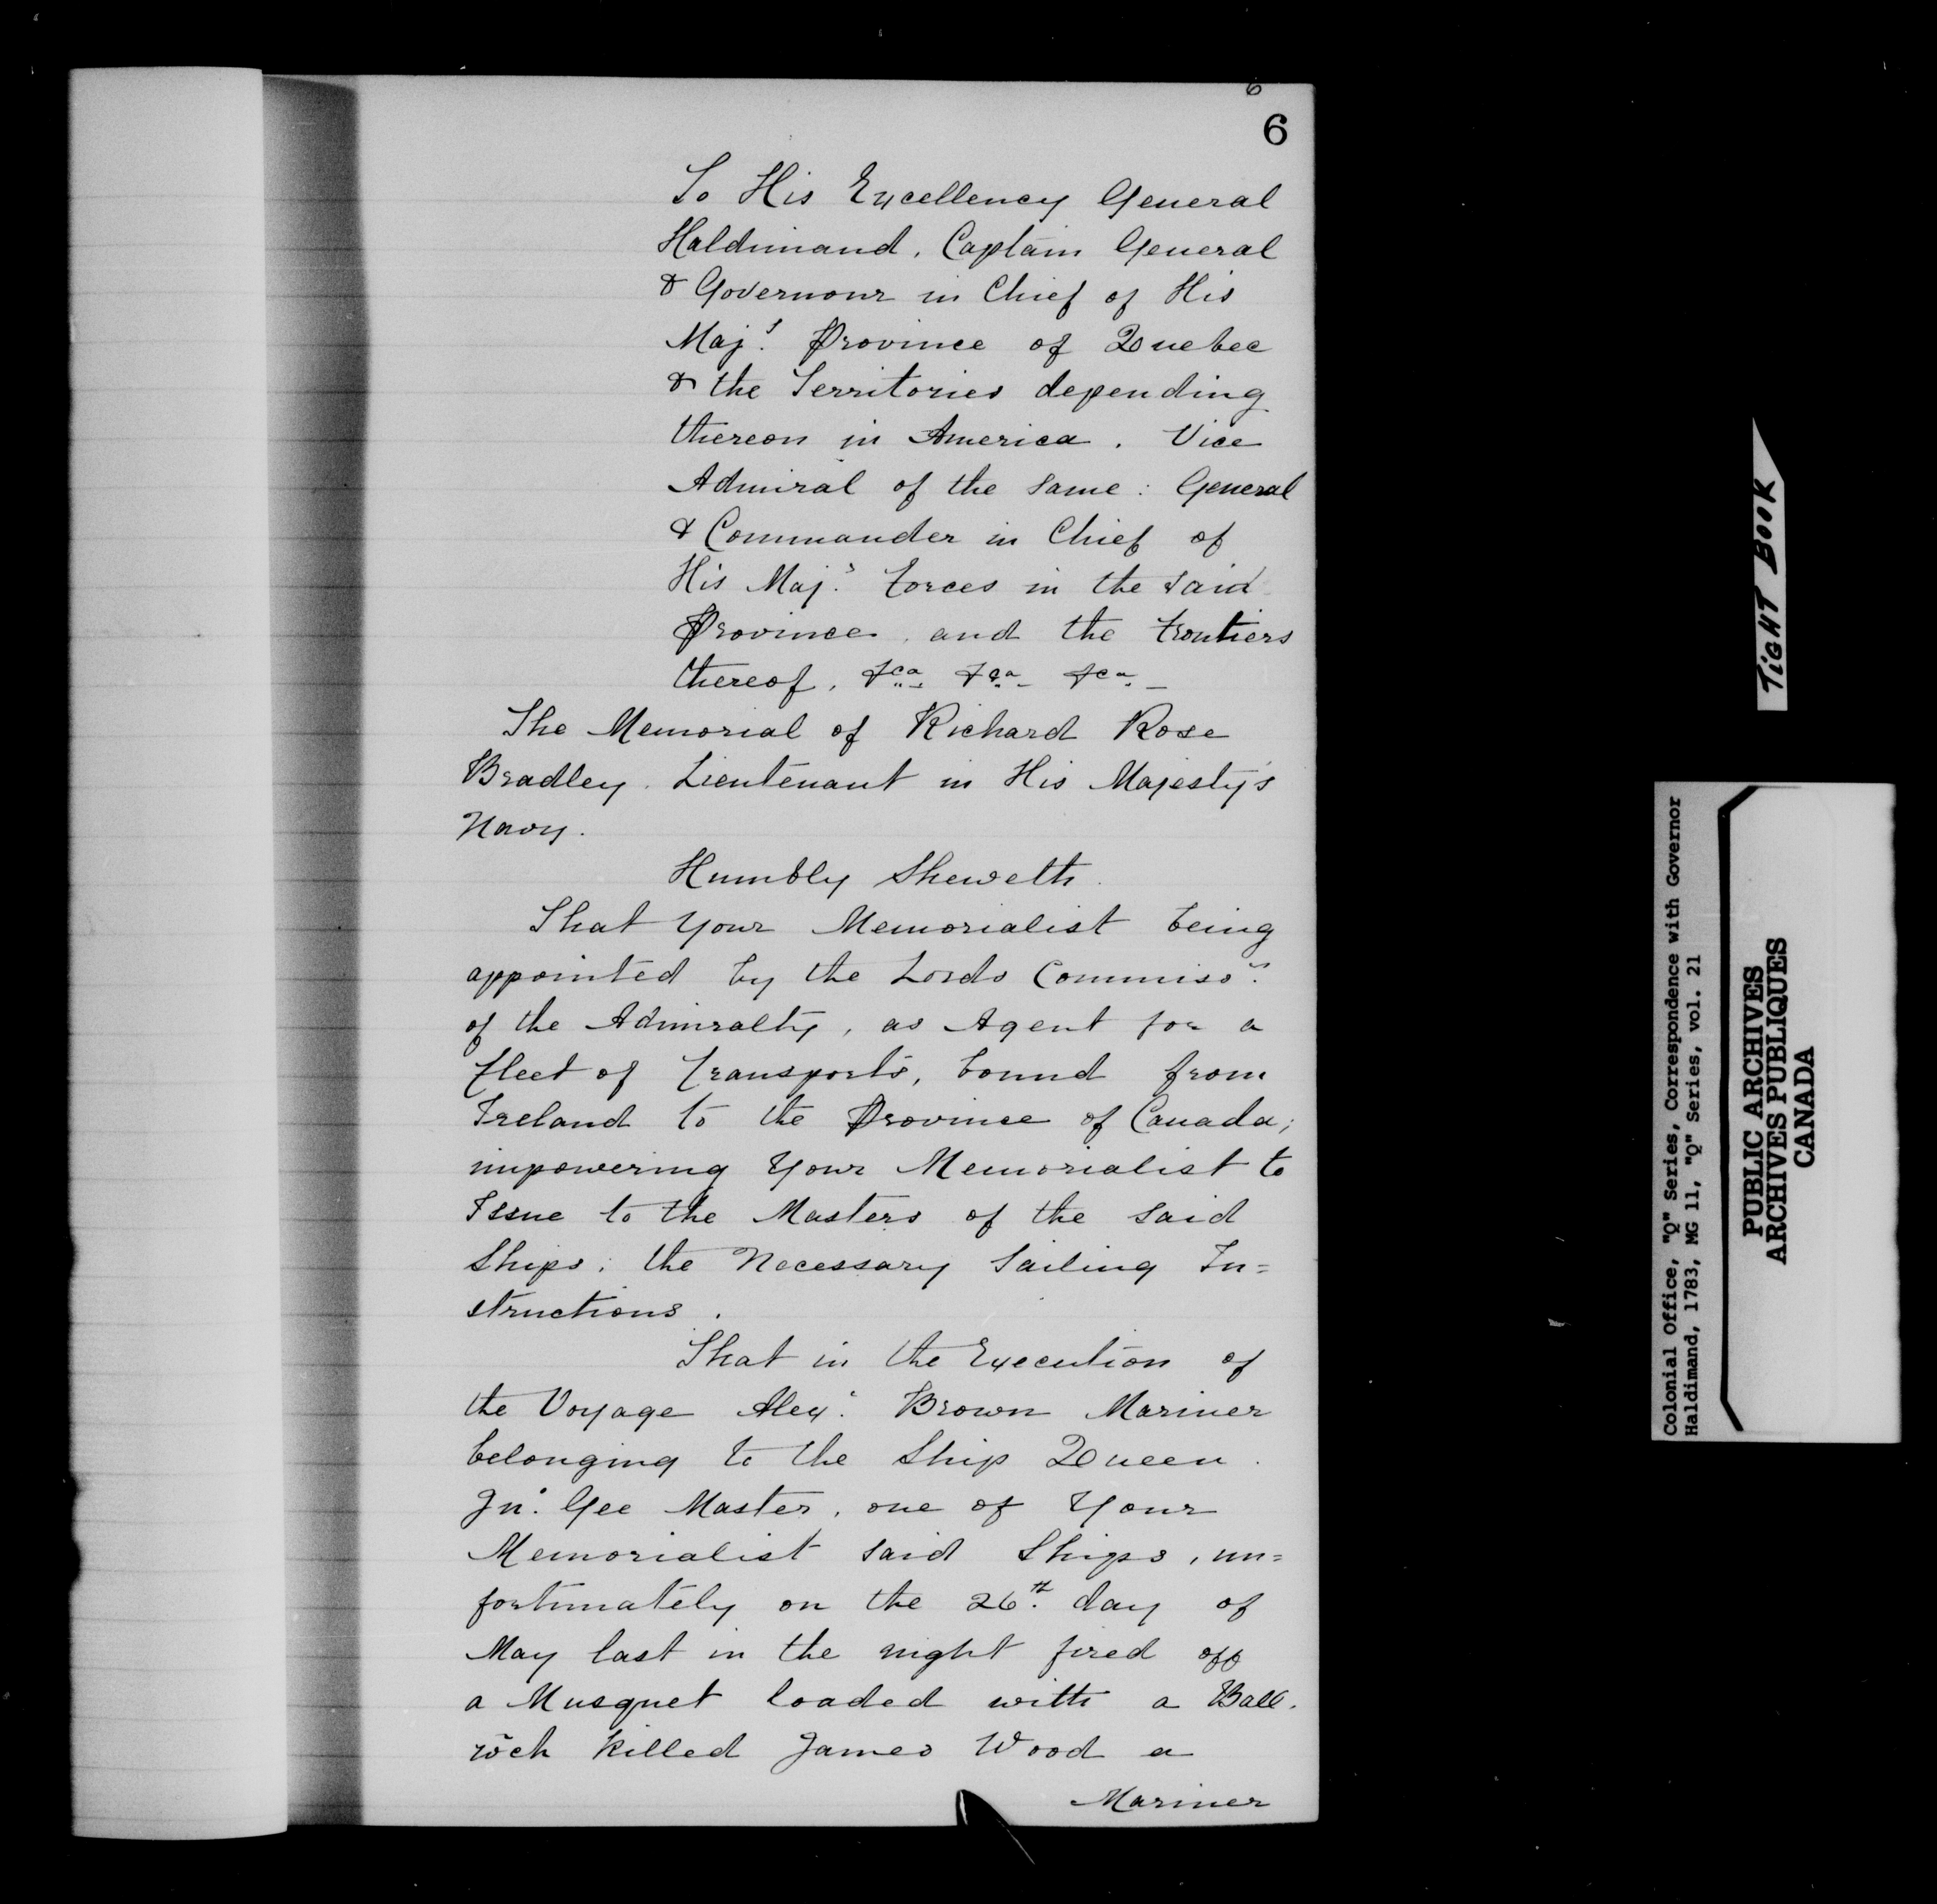 6
6
To His Excellency General
Haldimand, Captain General
& Governour in Chief of His
Maj.s Province of Quebec
& the Territories depending
thereon in America. Vice
Admiral of the same: General
& Commander in Chief of
His Maj.s forces in the said
Province, and the frontiers
thereof, &ca &ca &ca -
The Memorial of Richard Rose
Bradley. Lieutenant in His Majesty's
Navy.
Humbly Sheweth.
That Your Memorialist being
appointed by the Lords Commiss.rs
of the Admiralty, as Agent for a
fleet of Transports, bound from
Ireland to the Province of Canada;
impowering Your Memorialist to
Issue to the Masters of the said
Ships; the Necessary Sailing In=
structions.
That in the Execution of
the Voyage Alex.r Brown Mariner
belonging to the Ship Queen.
Jn.o Gee Master, one of Your
Memorialist said Ships, un=
fortunately on the 26.th day of
May last in the night fired off
a Musquet loaded with a Ball.
wc̄h killed James Wood a
Mariner
TIGHT BOOK
Colonial Office, "Q" Series, Correspondence with Governor
Haldimand, 1783, MG 11, "Q" Series, vol. 21
PUBLIC ARCHIVES
ARCHIVES PUBLIQUES
CANADA